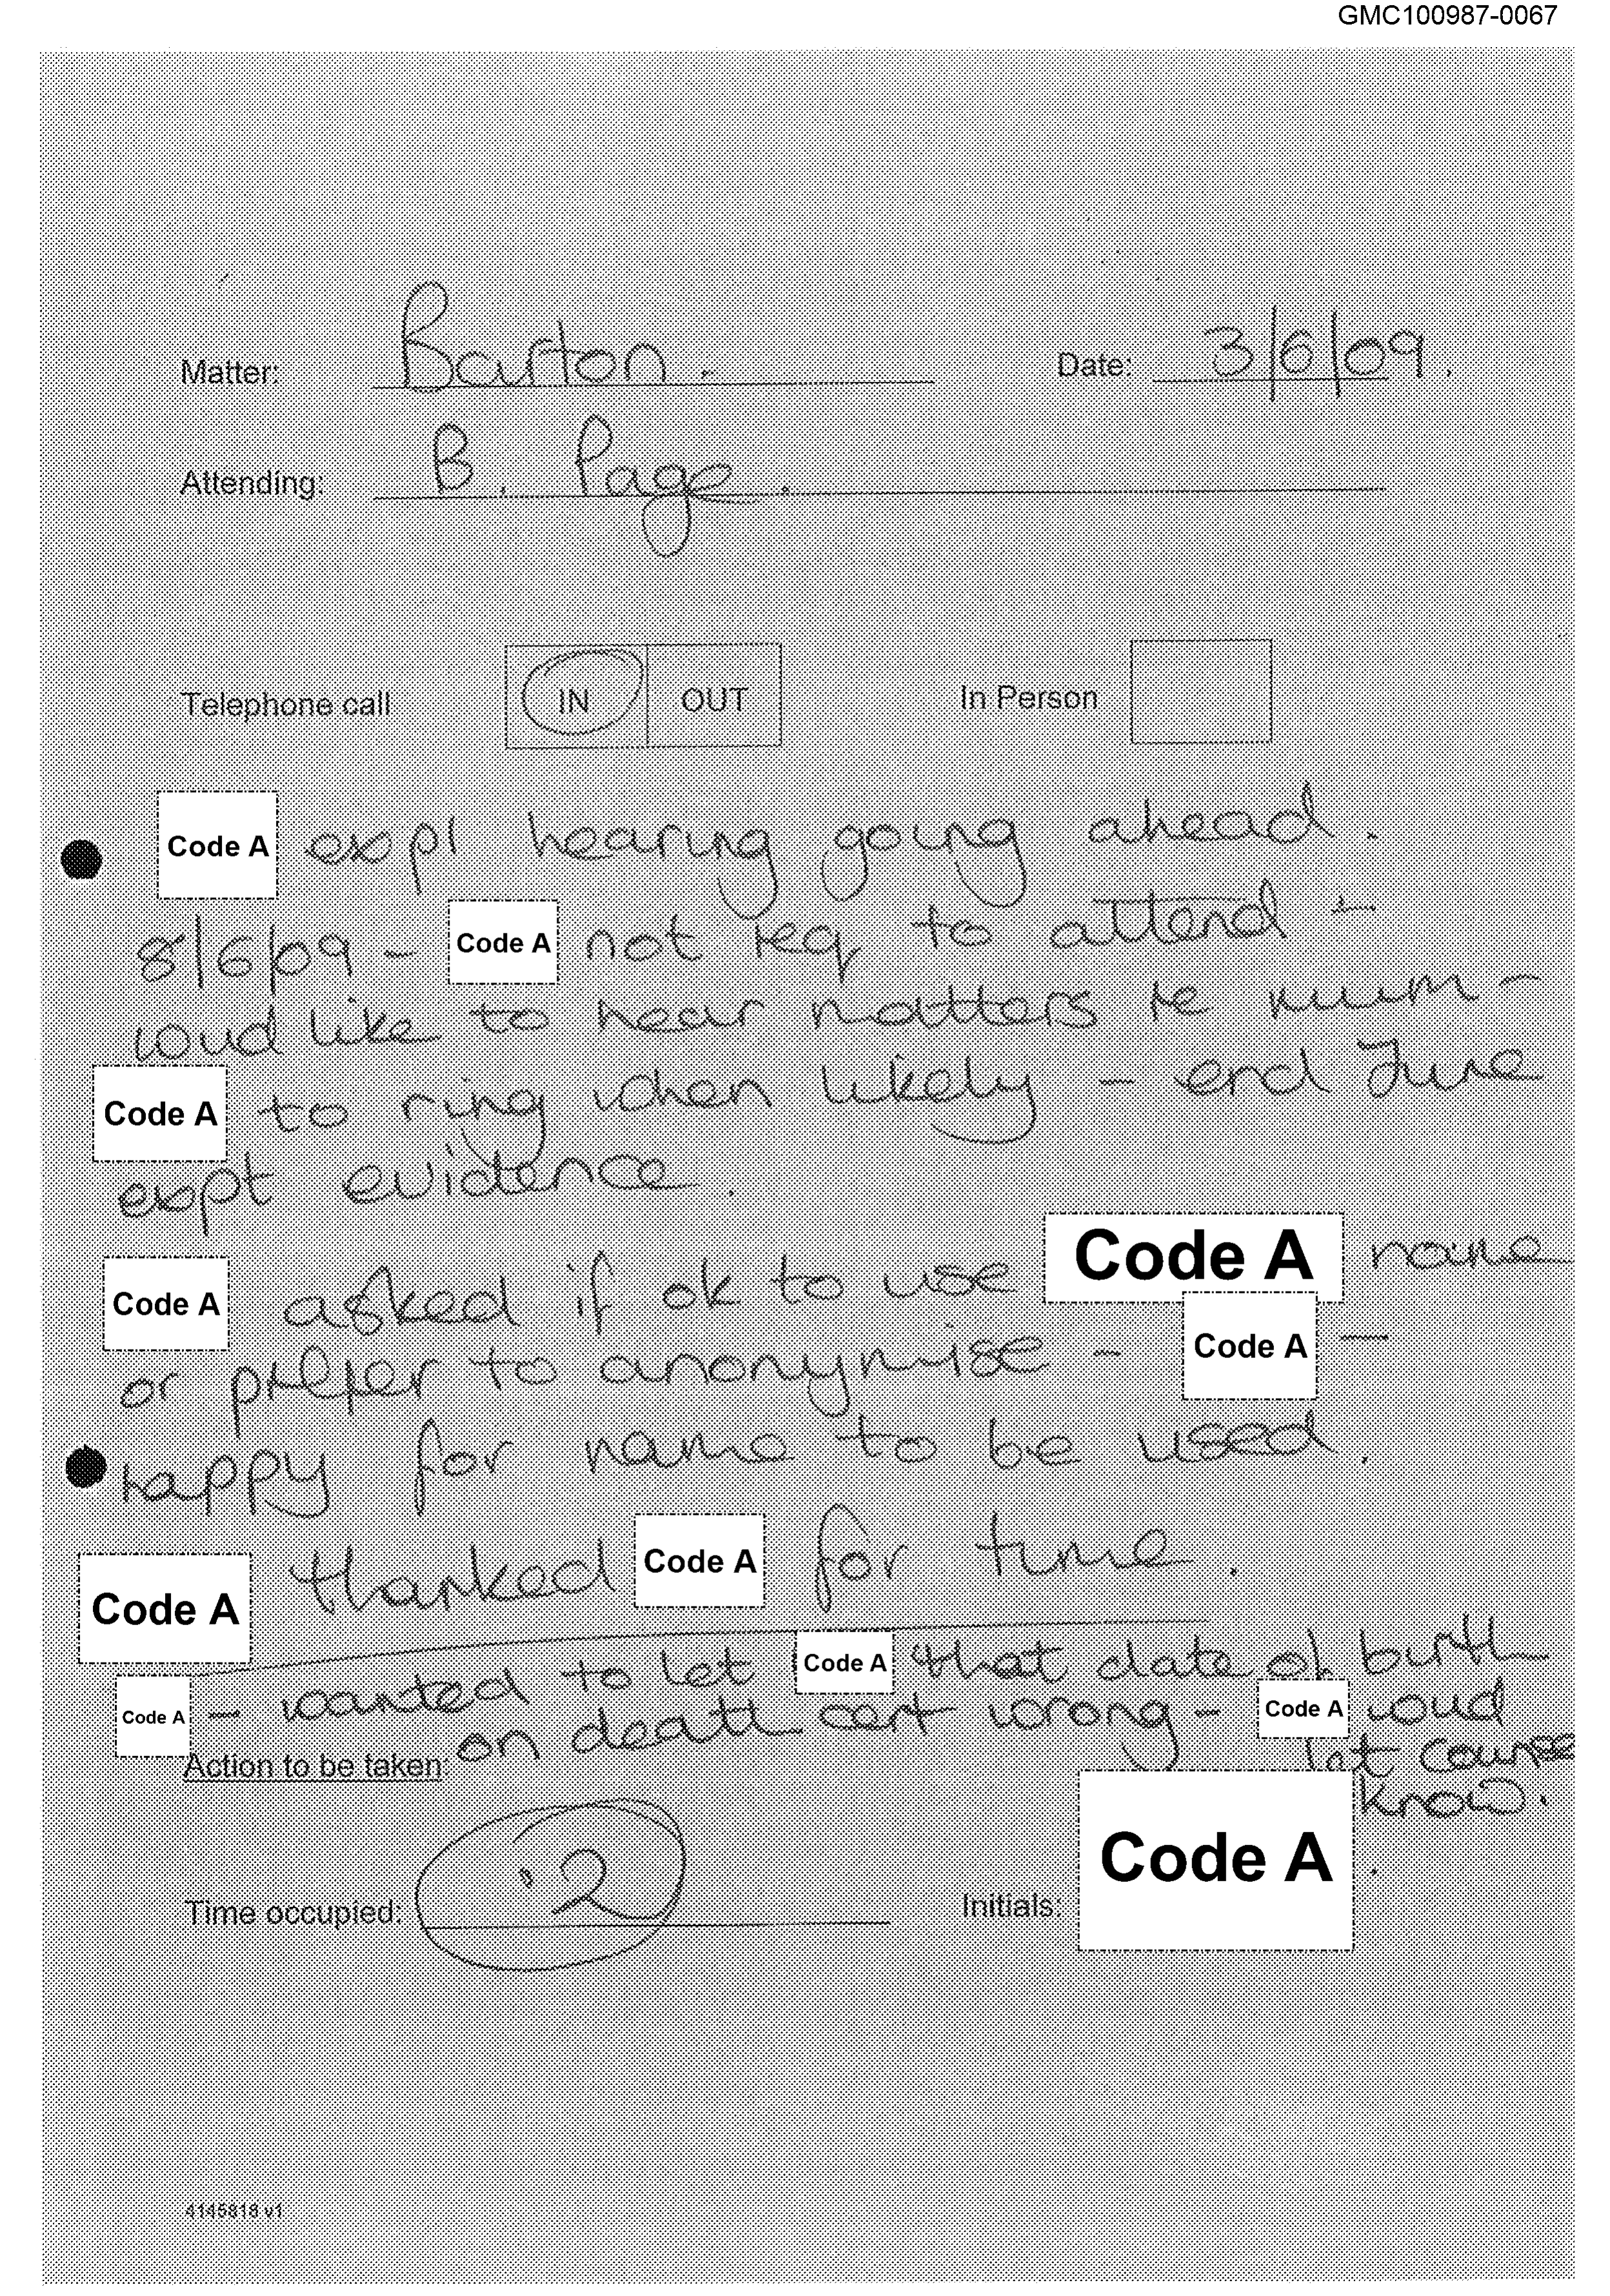 GMC100987-0067
Matter: Barton. Date: 3/6/09.
Attending: B. Page.
Telephone call IN OUT In Person
Code A expl hearing going ahead.
8/6/09 - Code A not req to attend +
woud like to hear matters re mum -
Code A to ring when likely - end June
expt evidence.
Code A asked if ok to use Code A name
or prefer to anonymise - Code A -
happy for name to be used.
Code A thanked Code A for time.
Code A - wanted to let Code A that date of birth
on death cert wrong - Code A woud
let counse
know.
Action to be taken:
Time occupied: 2 Initials: Code A
4145818 v1